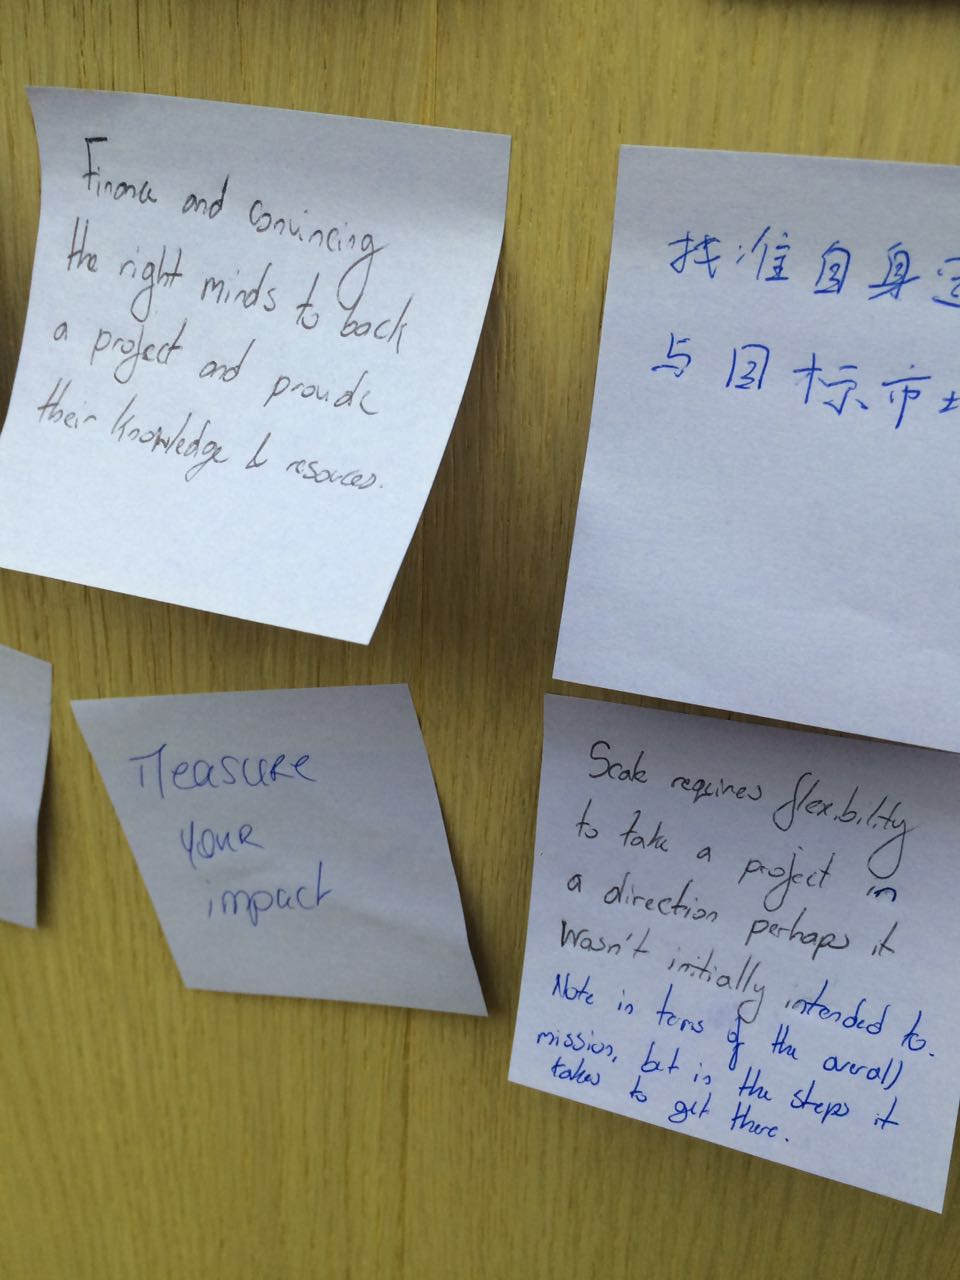 Finance and convincing
the right minds to back
a project and provide
their knowledge & resources.
找准自身
与目标市
Measure
your
impact
Scale requires flexibility
to take a project in
a direction perhaps it
wasn't initially intended to.
Note in terms of the overall
mission, but in the steps it
takes to get there.